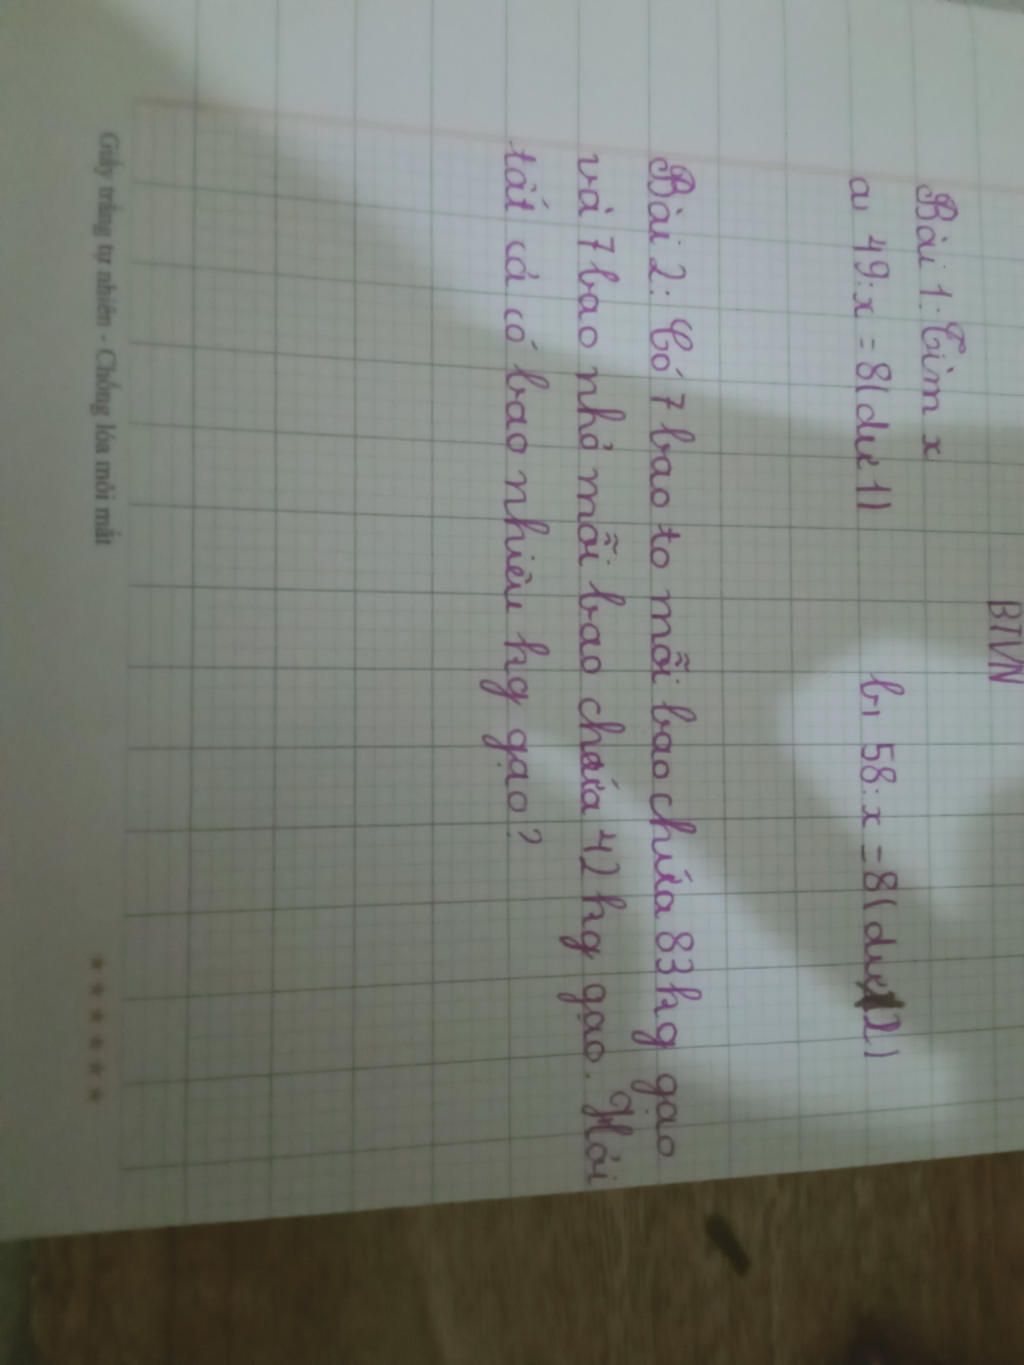 BTVN
Bài 1: Tìm x
a, 49: x = 8(dư 1) b, 58: x = 8(dư 2)
Bài 2: Có 7 bao to mỗi bao chứa 83 hg gạo
và 7 bao nhỏ mỗi bao chứa 42 hg gạo. Hỏi
tất cả có bao nhiêu hg gạo?
Giấy trắng tự nhiên - Chống lóa mỏi mắt